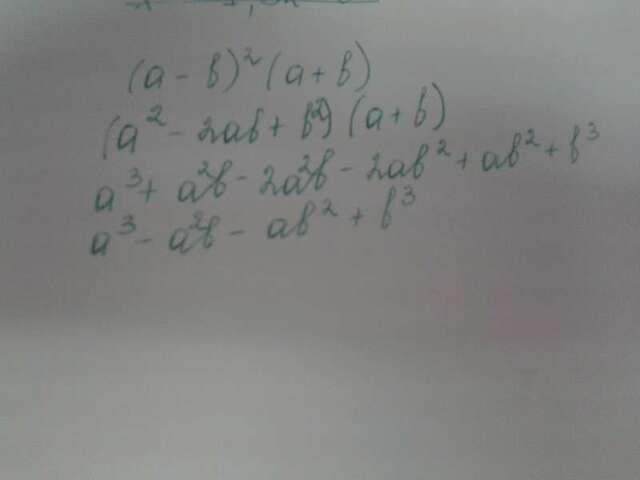 (a - b)² (a + b)
(a² - 2ab + b²) (a + b)
a³ + a²b - 2a²b - 2ab² + ab² + b³
a³ - a²b - ab² + b³